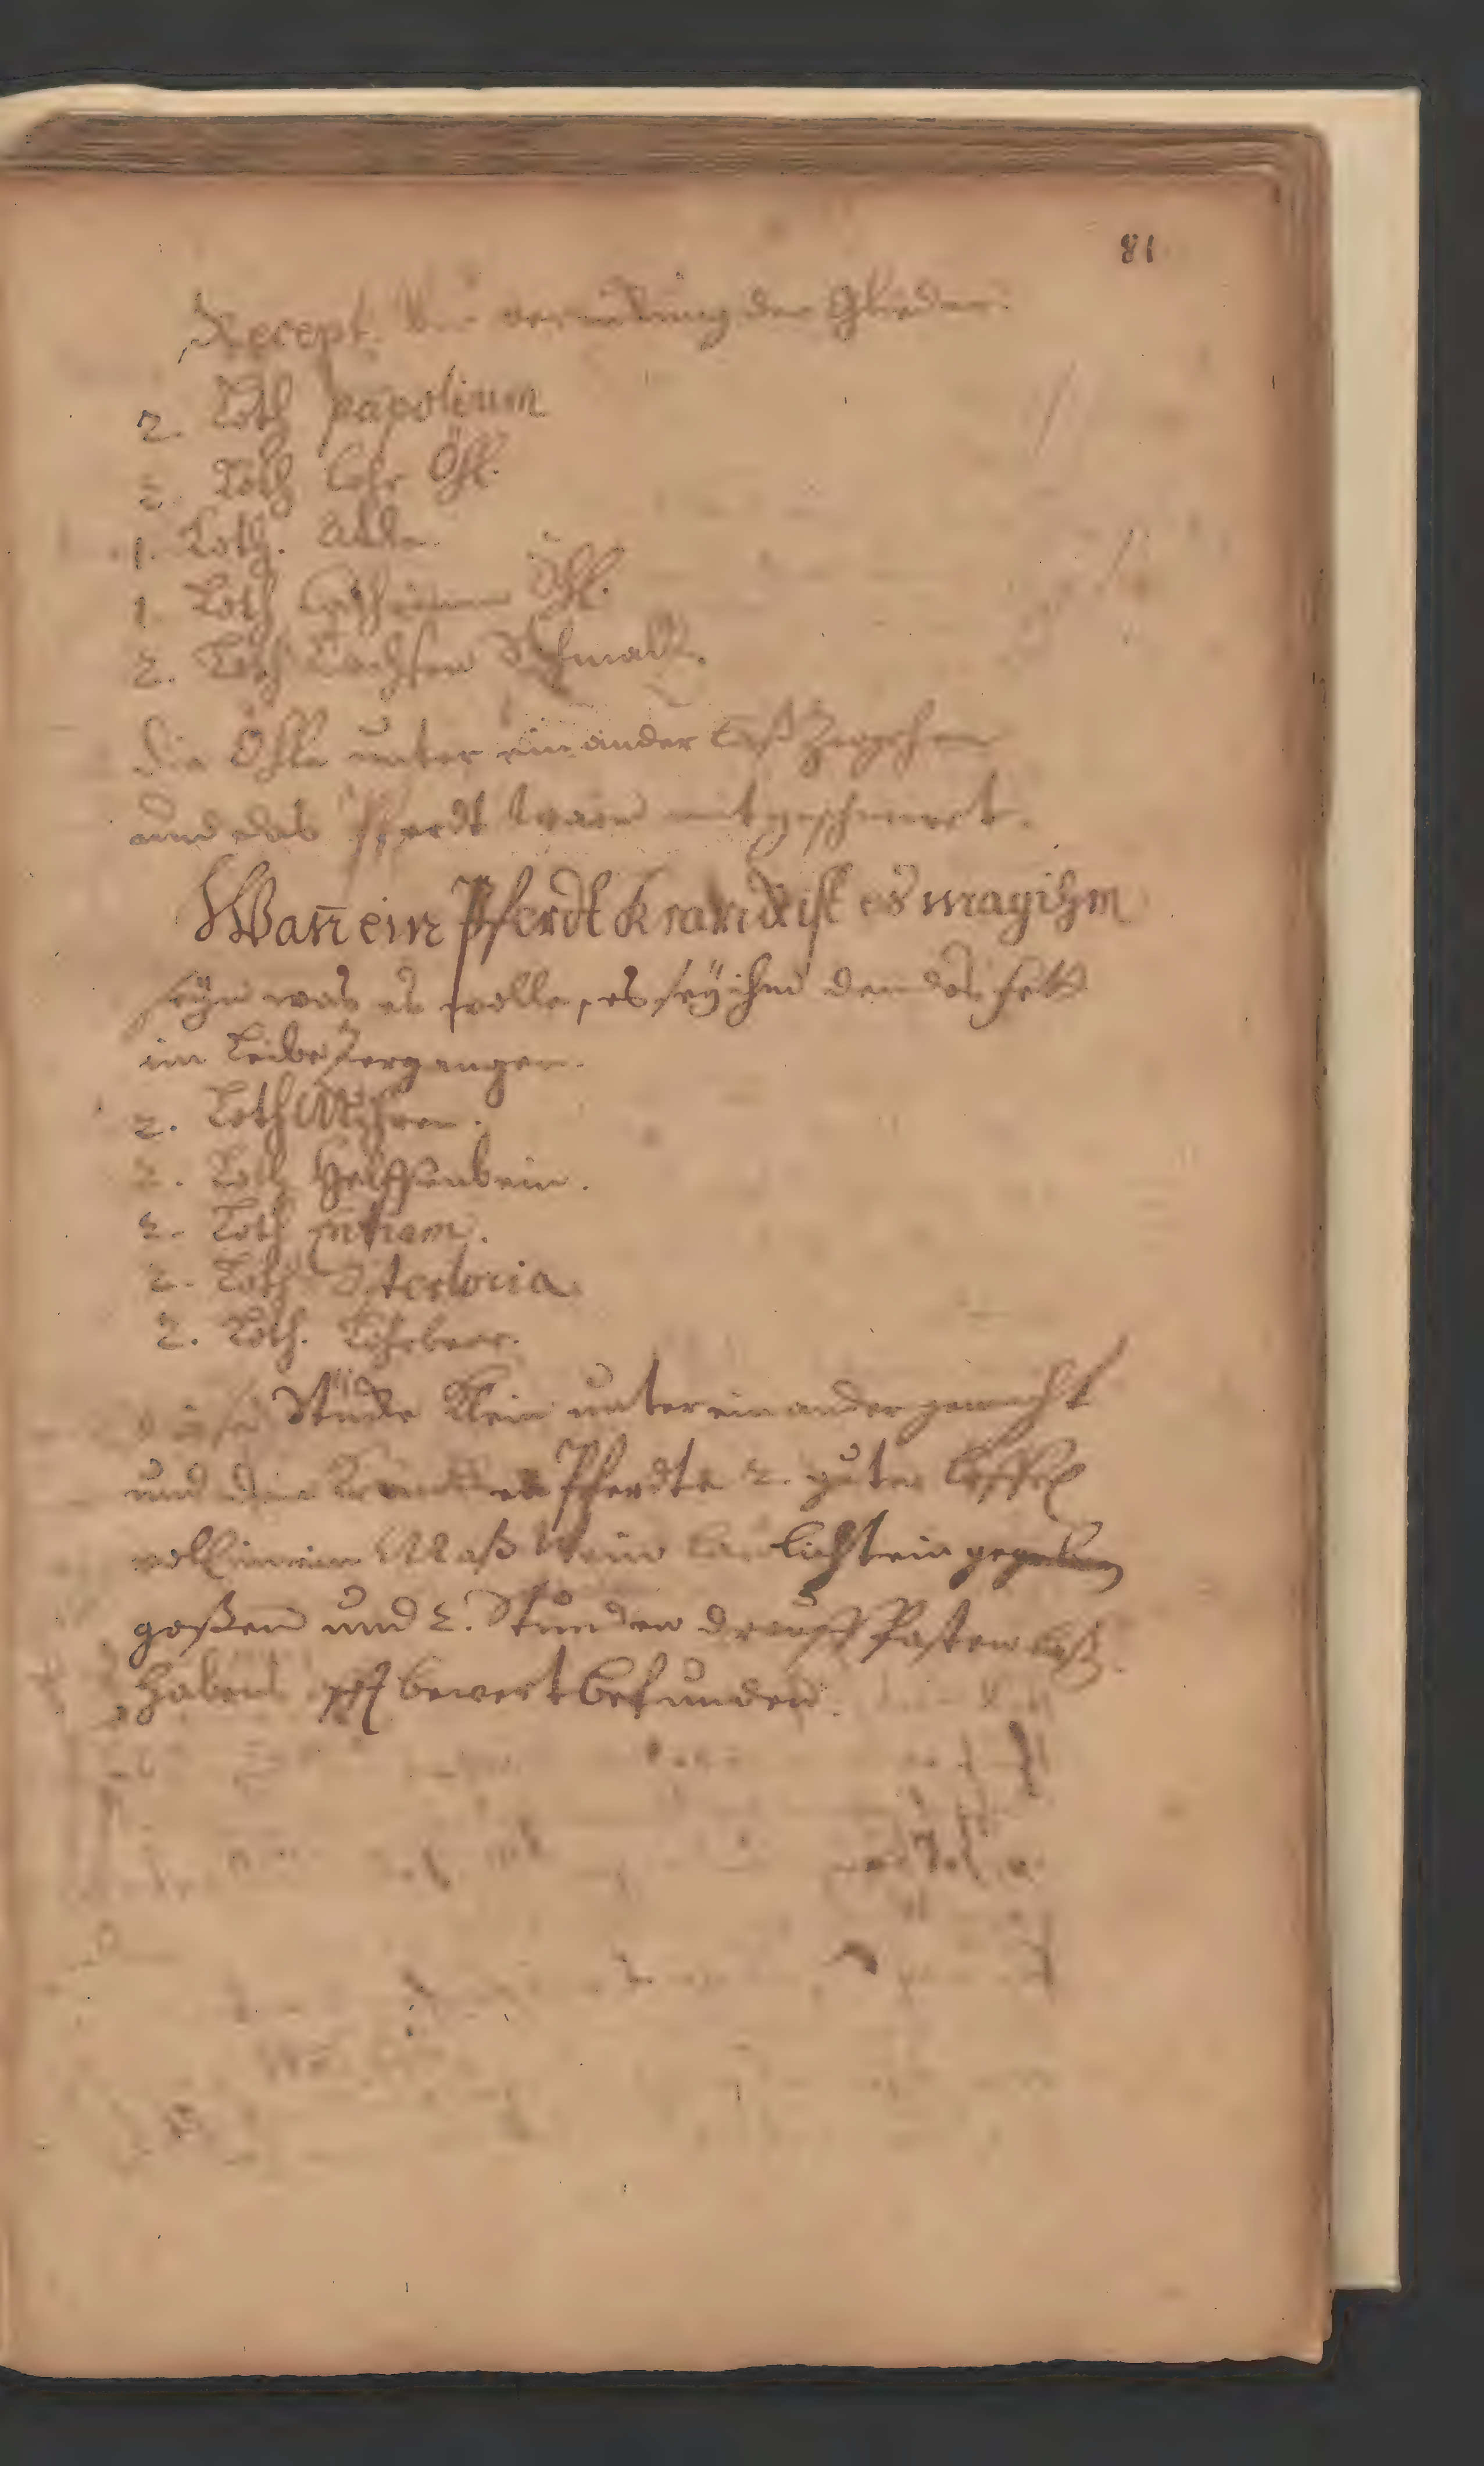 81
Recept. Von verrückung der Glieder.
2. Loth papolium
2. Loth Lohr Öhl.
1. Loth. Alte
1. Loth Öhl.
2. Loth Dachsen Schmaltz.
die Öhle unter ein ander laß Zergehen
und das Pferdt warm mit geschmiert.
Wañ ein Pferdt Kranck ist es mag ihm
seÿn was es wolle, es seÿ ihm den das fett
im Leibe Zergangen.
2. Loth Mÿhren.
2. Loth Helffenbein.
2. Loth
2. Loth
2. Loth. Lohrbeer.
diese Stücke Klein unter ein ander gemacht
und dem Krancken Pferdte 2. guter Leffel
voll in ein Maß Wein laulicht ein gegeben
goßen und 2. Stunden drauff Fasten laß.
Haben bewert befunden.